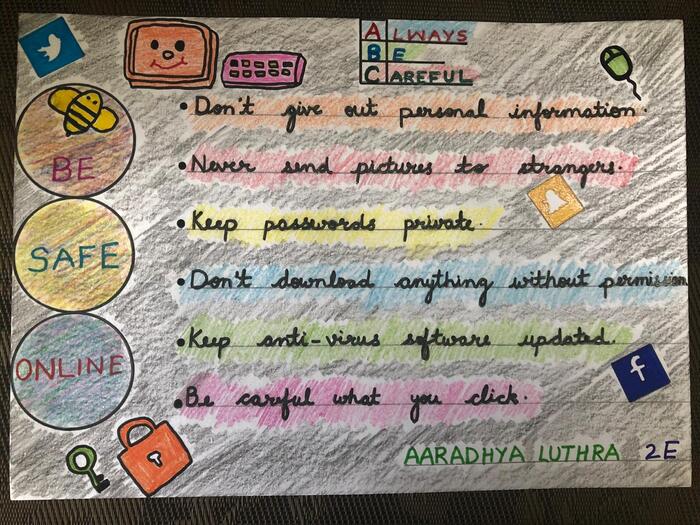 ALWAYS
BE
CAREFUL
• Don't give out personal information.
• Never send pictures to strangers.
BE
• Keep passwords private.
SAFE
• Don't download anything without permission
• Keep anti-virus software updated.
ONLINE
f
• Be careful what you click.
AARADHYA LUTHRA 2E